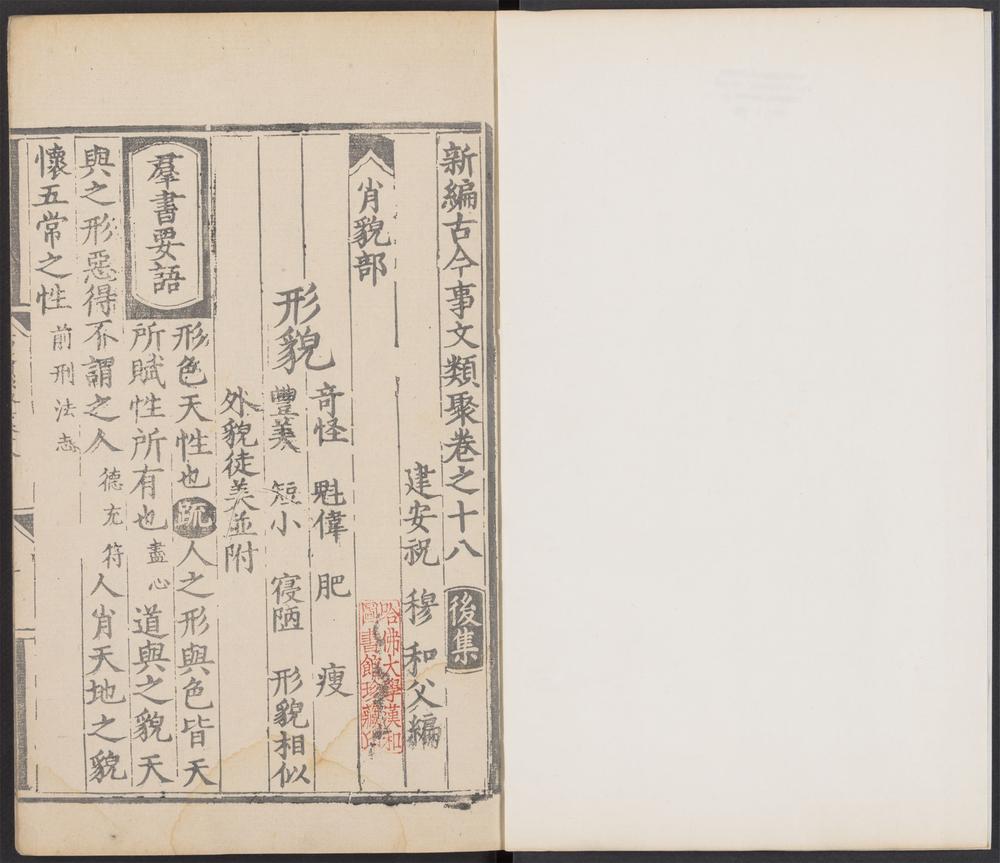 新編古今事文類聚卷之十八 後集
建安祝 穆 和父編
哈佛大學漢和
圖書館珍藏印
肖貌部
形貌
奇怪 魁偉 肥 瘦
豐美 短小 寢陋 形貌相似
外貌徒美並附
羣書要語
形色天性也䟽人之形與色皆天
所賦性所有也盡心道與之貌天
與之形惡得不謂之人德充符人肖天地之貌
懷五常之性前刑法志